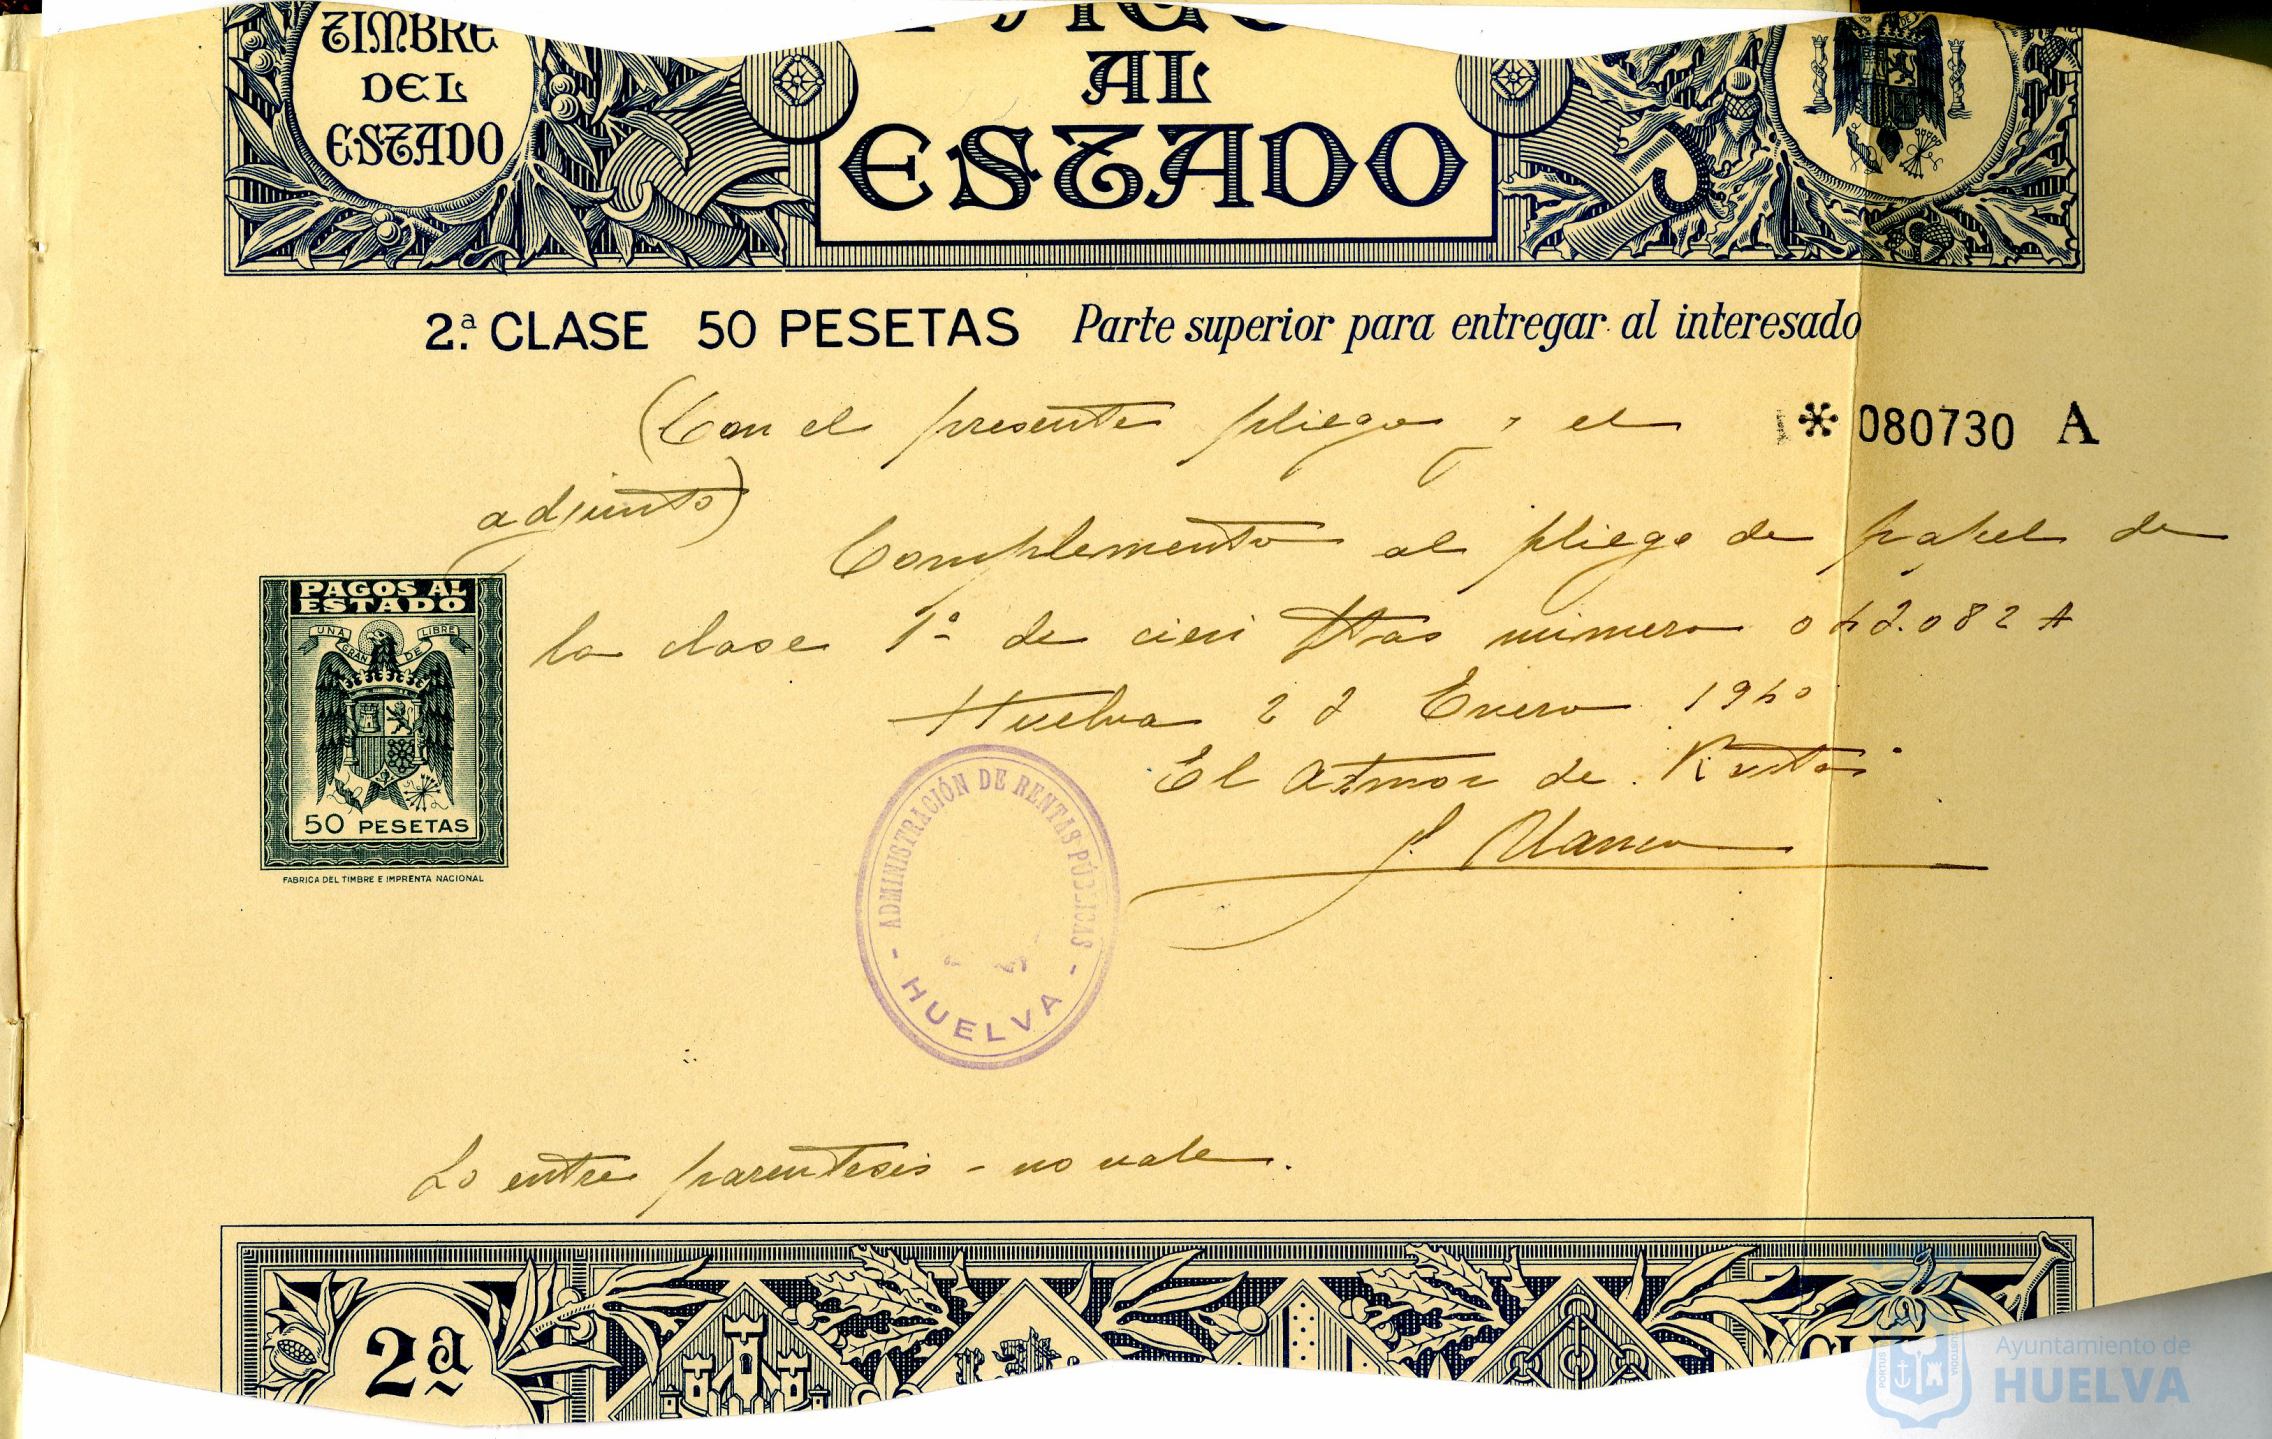 TIMBRE
DEL
ESTADO
AL
ESTADO
2.ª CLASE 50 PESETAS Parte superior para entregar al interesado
(Con el presente pliego y el
* 080730 A
adjunto)
Complemento al pliego de papel de
la clase 1ª de cien Ptas número 042.082 A
Huelva 22 Enero 1940
El Admor de Rentas
J. Blanco
PAGOS AL
ESTADO
UNA GRANDE LIBRE
50 PESETAS
FABRICA DEL TIMBRE E IMPRENTA NACIONAL
ADMINISTRACIÓN DE RENTAS PÚBLICAS
- HUELVA -
Lo entre parentesis - no vale.
2ª
Ayuntamiento de
HUELVA